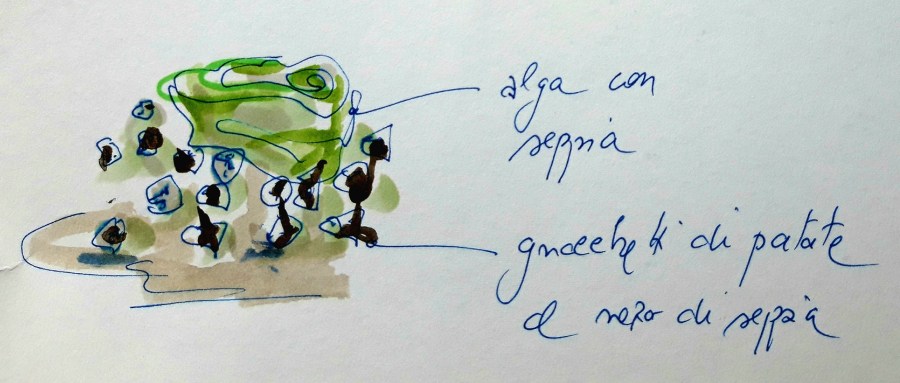 alga con
seppia
gnocchetti di patate
al nero di seppia